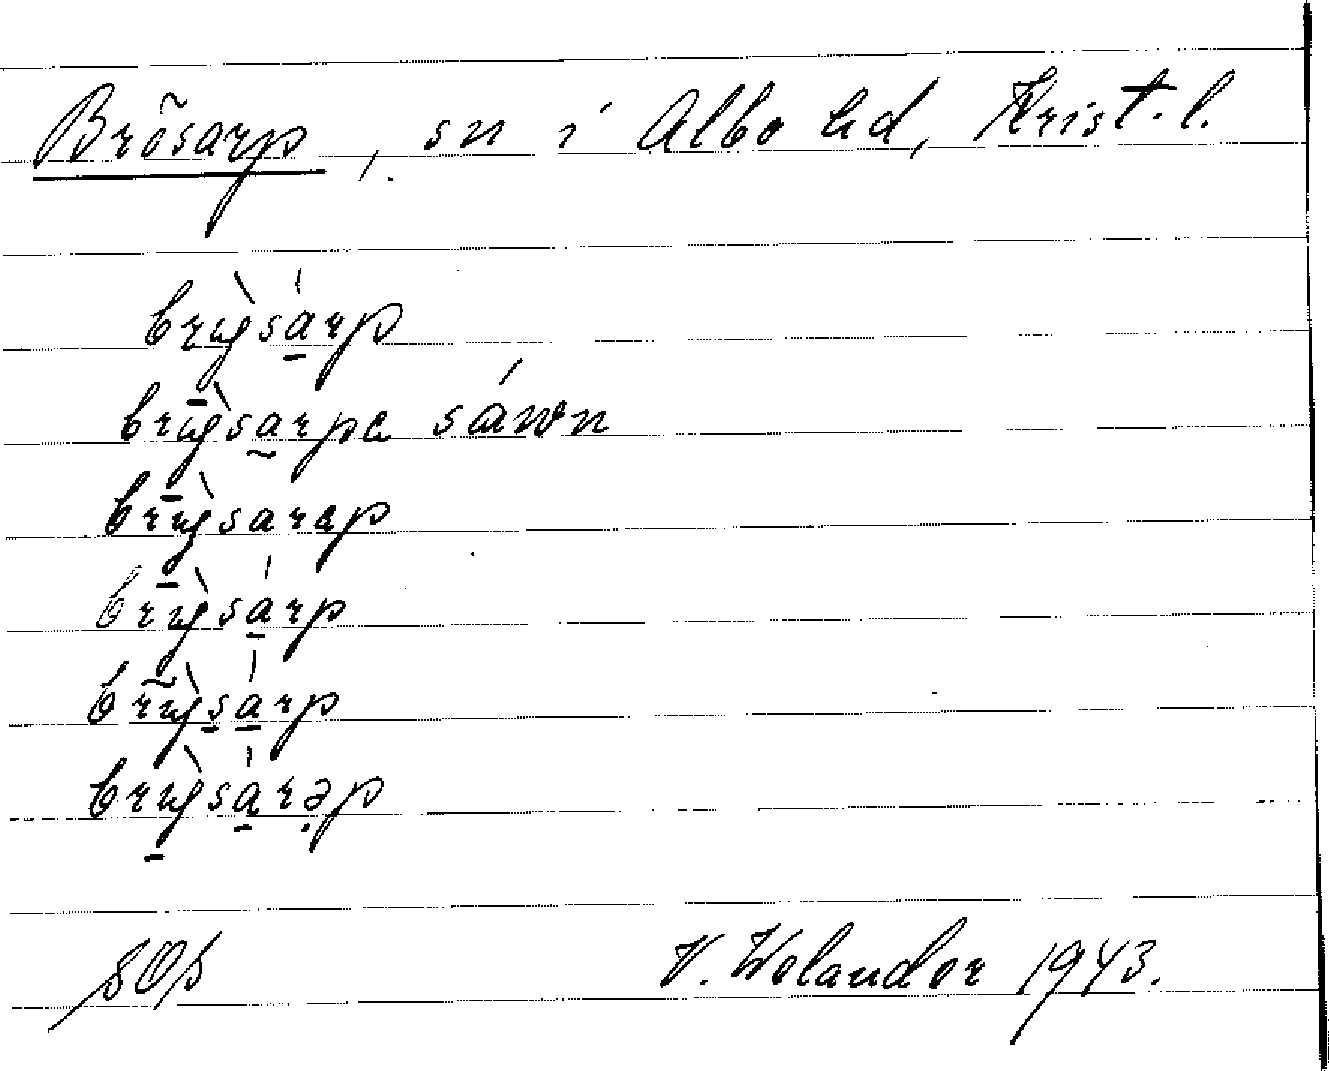 Brösarp, sn i Albo hd, Krist.l.
brɥ̀sárp
brɥ̀sarpa sáwn
brɥ̀sarap
brɥ̀sárp
brɥ̀sárp
brɥ̀sárəp
V. Welander 1943.